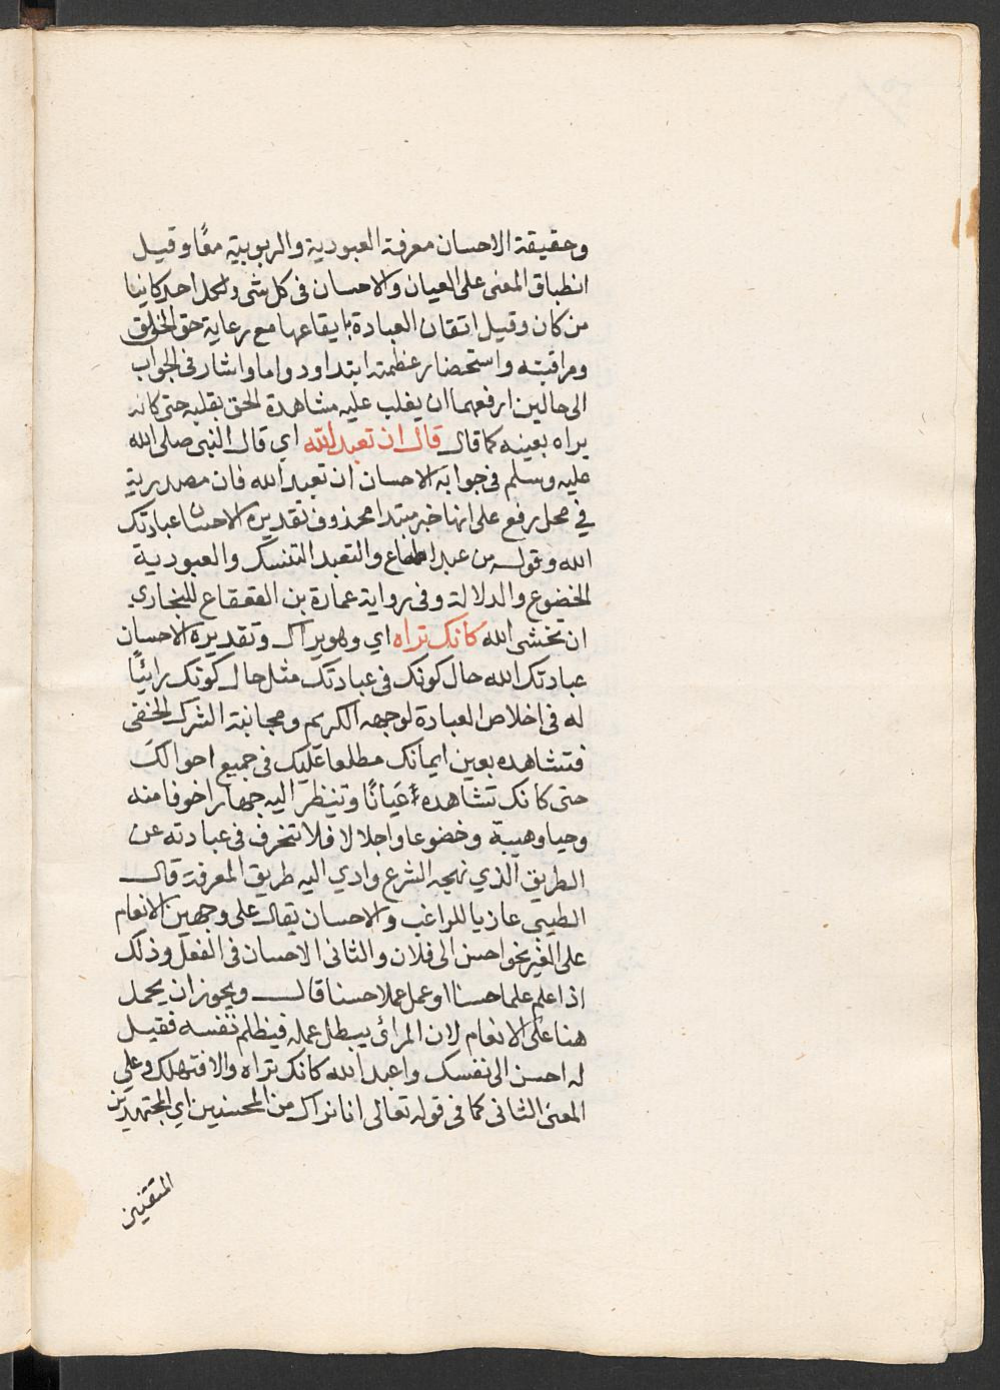 وحقيقة الاحسان معرفة العبودية والربوبية معًا وقيل
انطباق المعنى على العيان والاحسان فى كل شى ولكل احد كاينا
من كان وقيل اتقان العبادة بايقاعها مع رعاية حق الخلق
ومراقبته واستحضار عظمته ابتدا ودواما واشار فى الجواب
الى حالين ارفعهما ان يغلب عليه مشاهدة الحق بقلبه حتى كانه
يراه بعينه كما قال قال ان تعبد الله اي قال النبى صلى الله
عليه وسلم فى جوابه الاحسان ان تعبد الله فان مصدرية
في محل رفع على انها خبر مبتدا محذوف تقديره الاحسان عبادتك
الله وقوله من عبد اطاع والتعبد التنسك والعبودية
الخضوع والدلالة وفى رواية عمارة بن القعقاع للبخاري
ان تخشى الله كانك تراه اي وهو يراك وتقديره الاحسان
عبادتك الله حال كونك فى عبادتك مثل حال كونك رائيًا
له فى اخلاص العبادة لوجهه الكريم ومجانبة الشرك الخفى
فتشاهده بعين ايمانك مطلعا عليك فى جميع احوالك
حتى كانك تشاهده عَيانًا وتنظر اليه جهارا خوفا منه
وحيا وهيبة وخضوعا واجلالا فلا تنحرف فى عبادته عن
الطريق الذي نهجه الشرع وادي اليه طريق المعرفة قال
الطيبي عازيا للراغب والاحسان يقال على وجهين الانعام
على الغير نحو احسن الى فلان والثانى الاحسان فى الفعل وذلك
اذا علم علما حسنا او عمل عملا حسنا قال ويجوز ان يحمل
هنا على الانعام لان المرائ يبطل عمله فيظلم نفسه فقيل
له احسن الى نفسك واعبد الله كانك تراه والا فتهلك وعلى
المعنى الثانى كما فى قوله تعالى انا نراك من المحسنين اي المجتهدين
المتقنين